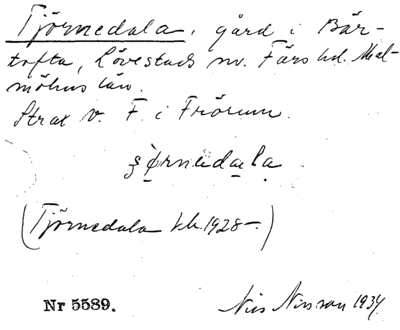 Tjörnedala, gård i Bär-
tofta, Lövestads sn. Färs hd. Mal-
möhus län.
Strax v. F. i Frörum.
ʒørnədala
(Tjörnedala kk. 1928–.)
Nr 5589. Nils Nilsson 1934.